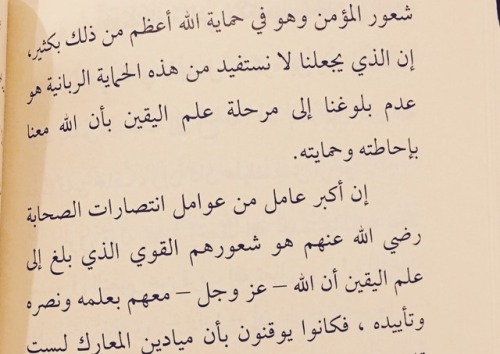 شعور المؤمن وهو في حماية الله أعظم من ذلك بكثير،
إن الذي يجعلنا لا نستفيد من هذه الحماية الربانية هو
عدم بلوغنا إلى مرحلة علم اليقين بأن الله معنا
بإحاطته وحمايته.
إن أكبر عامل من عوامل انتصارات الصحابة
رضي الله عنهم هو شعورهم القوي الذي بلغ إلى
علم اليقين أن الله – عز وجل – معهم بعلمه ونصره
وتأييده ، فكانوا يوقنون بأن ميادين المعارك ليست